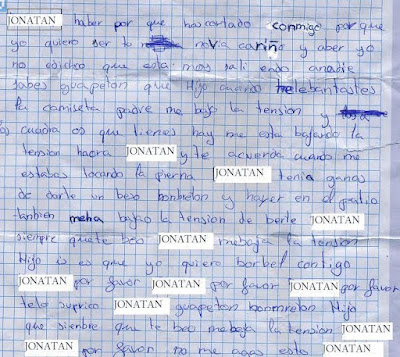 JONATAN haber por que has cortado conmigo por que
yo quiero ser tu novia cariño y aber yo
no e dicho que esta mos sali endo a nadie
sabes guapeton que Hijo cuando te lebantastes
la camiseta padre me bajo la tension y
cuadra os que tienes hay me esta bajando la
tension haora JONATAN y te acuerda cuando me
estabas tocando la pierna JONATAN tenia ganas
de darte un beso bonboton y hayer en el patio
tanbien meha bajao la tension de berte JONATAN
siempre que te beo JONATAN mebaja la tension
Hijo is es que yo quiero borbel contigo
JONATAN por favor JONATAN por favor JONATAN por favor
telo suprico JONATAN guapeton bonmroton Hijo
que sienbre que te beo mebaja la tension JONATAN
JONATAN por favor no me agas esto JONATAN